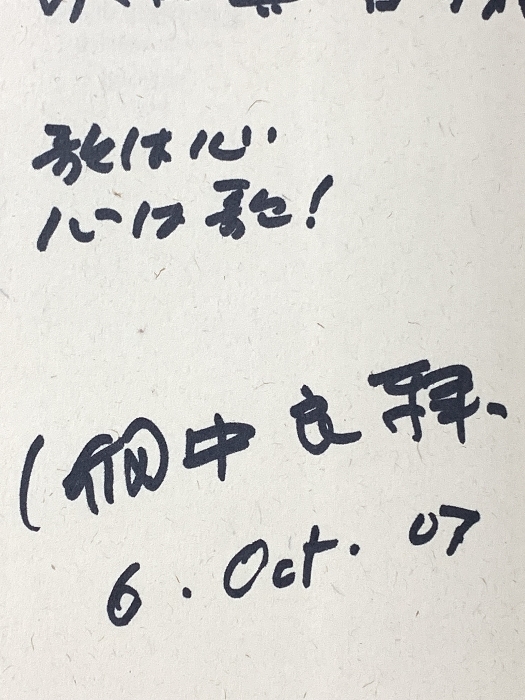 歌は心
心は歌!
(畑中良 拝
6. Oct. 07